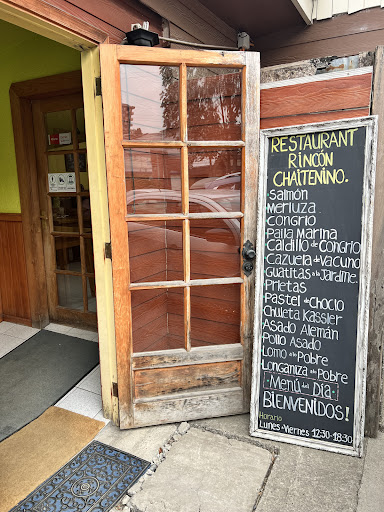 RESTAURANT
RINCÓN
CHAITENINO.
·SALMÓN
·MERLUZA
·CONGRIO
·PAILA MARINA
·CALDILLO de CONGRIO
·CAZUELA de VACUNO
·GUATITAS a la JARDINE.
·PRIETAS
·PASTEL de CHOCLO
·CHULETA KASSLER
·ASADO ALEMÁN
·POLLO ASADO
·LOMO a lo POBRE
·LONGANIZA a lo POBRE
·MENÚ del DÍA
BIENVENIDOS!
Horario
Lunes a Viernes 12:30-18:30